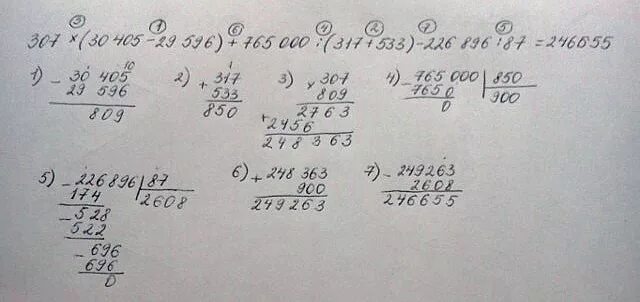 ③ ① ⑥ ④ ② ⑦ ⑤
307 × (30 405 - 29 596) + 765 000 : (317 + 533) - 226 896 : 87 = 246655
1) - 30 405 10
29 596
809
2) + 317 1
533
850
3) × 307
809
2763
+ 2456
248363
4) - 765 000 | 850
7650 900
0
5) - 226896 | 87
174 2608
- 528
522
- 696
696
0
6) + 248 363
900
249263
7) - 249263
2608
246655